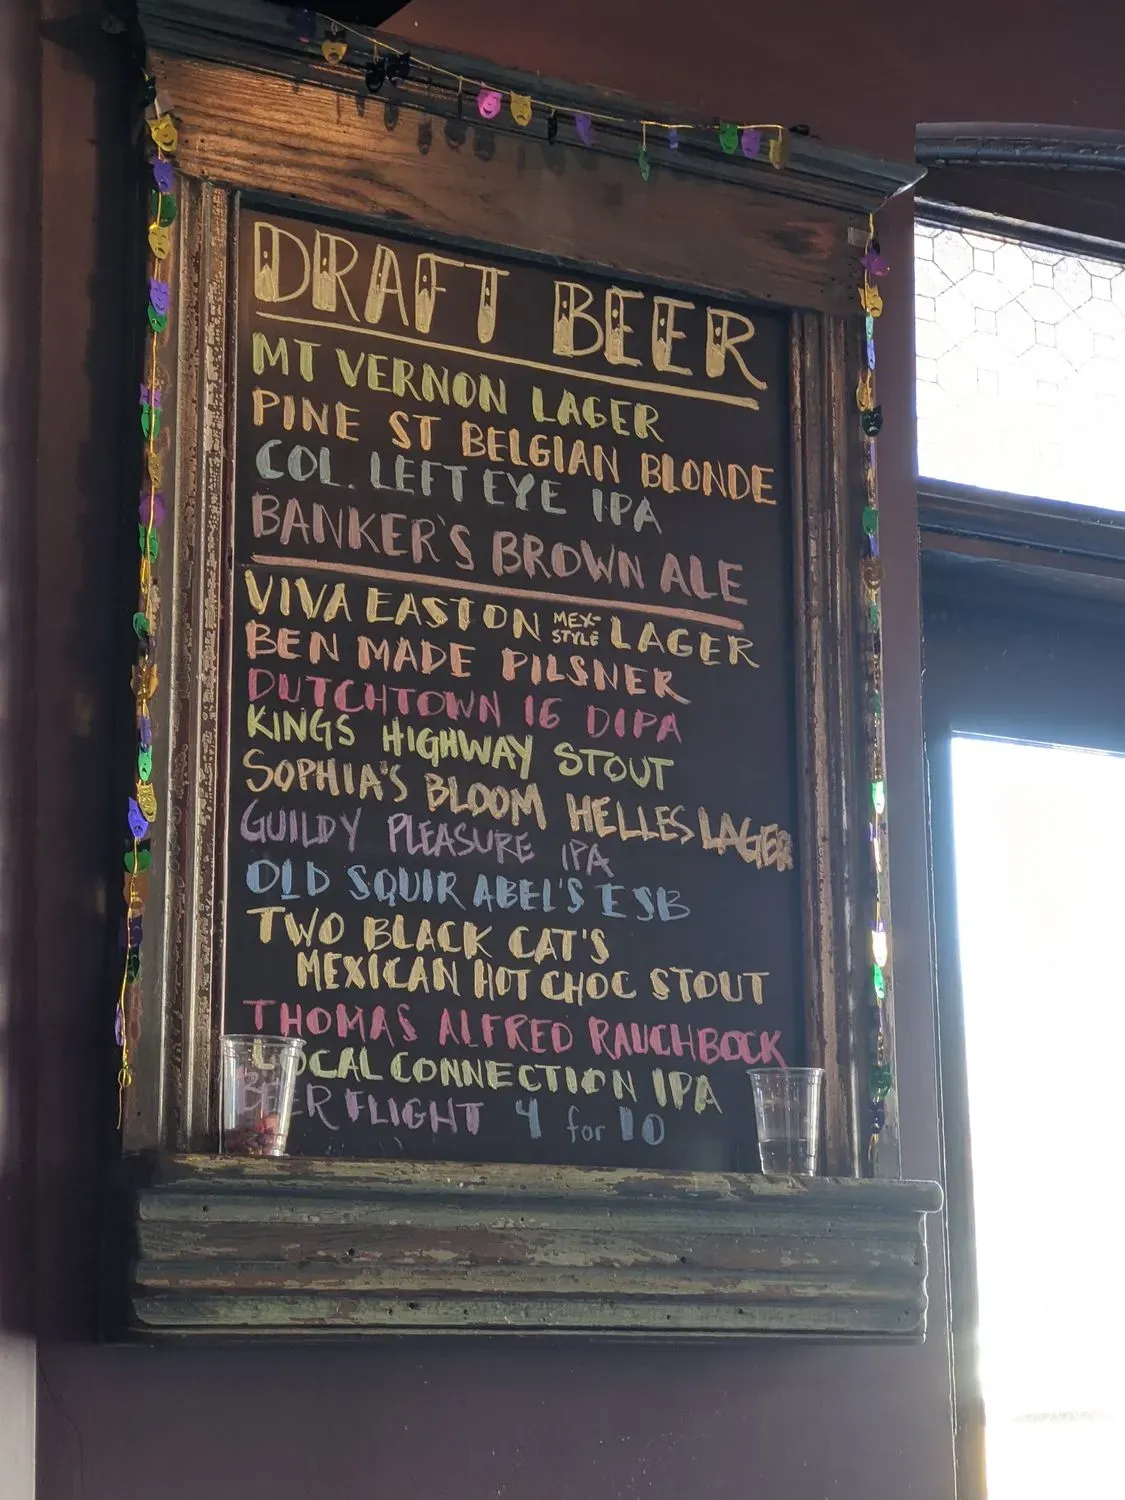 DRAFT BEER
MT VERNON LAGER
PINE ST BELGIAN BLONDE
COL. LEFT EYE IPA
BANKER'S BROWN ALE
VIVA EASTON MEX-STYLE LAGER
BEN MADE PILSNER
DUTCHTOWN 16 DIPA
KINGS HIGHWAY STOUT
SOPHIA'S BLOOM HELLES LAGER
GUILDY PLEASURE IPA
OLD SQUIR ABEL'S ESB
TWO BLACK CAT'S
MEXICAN HOT CHOC STOUT
THOMAS ALFRED RAUCHBOCK
LOCAL CONNECTION IPA
BEER FLIGHT 4 for 10